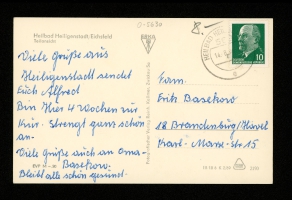 Heilbad Heiligenstadt/Eichsfeld
Viele Grüße aus
Heiligenstadt sendet
Euch Alfred
Bin Hier 4 Wochen zur
Kur. Strengt ganz schön
an.
Viele Grüße auch an Oma-
Basekow.
Bleibt alle schön gesund.
Fam.
Erich Basekow
18 Brandenburg/Havel
Karl-Marx-Str 15
10